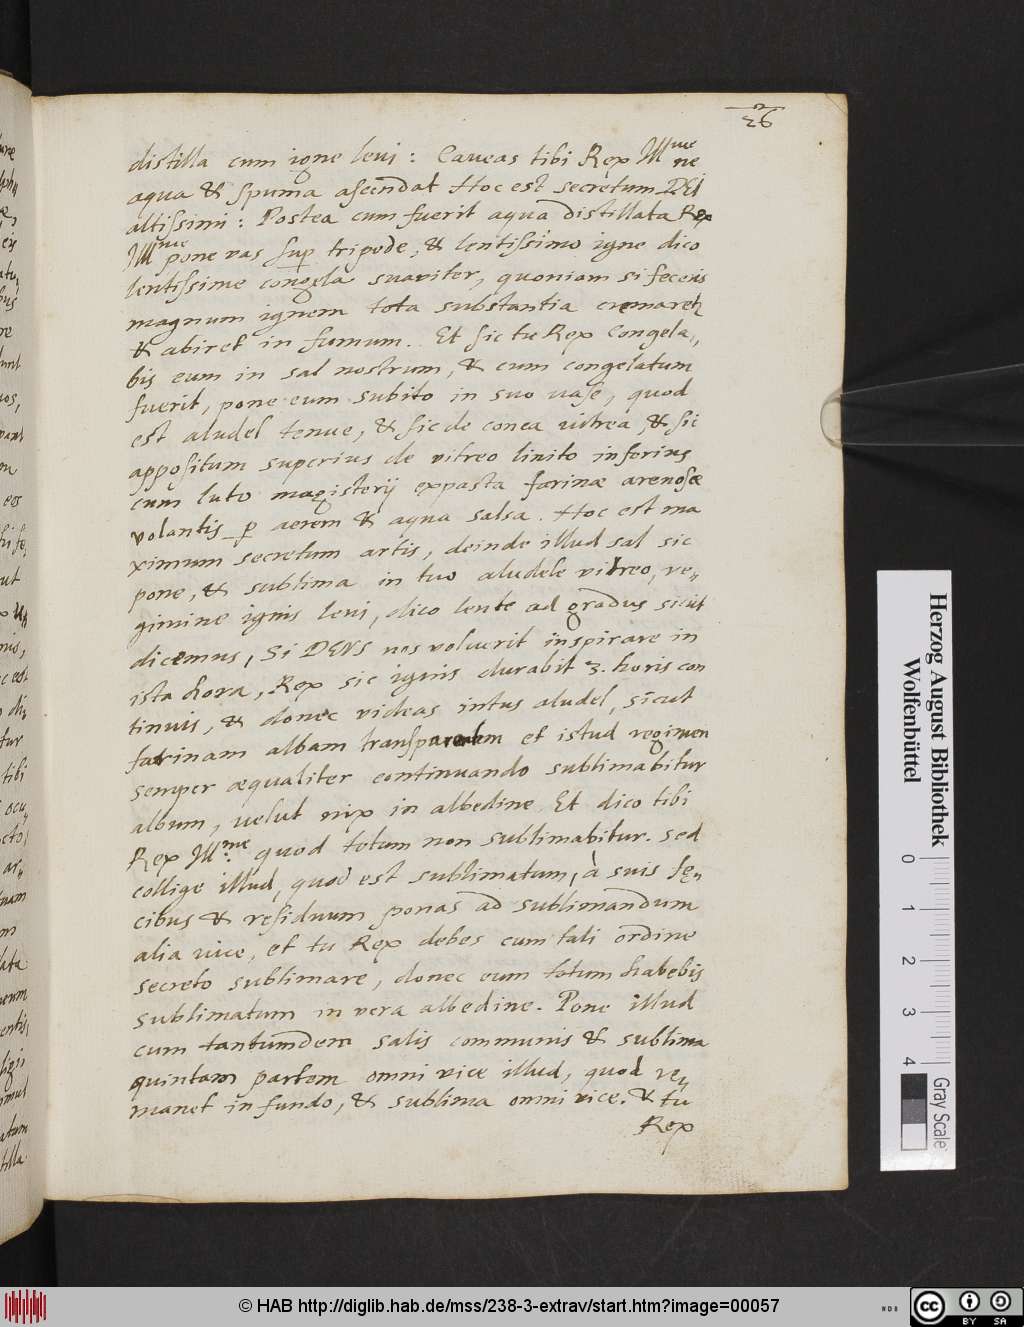 26
distilla cum igne levi: Caveas tibi Rex Ill.me ne
aqua & spuma ascendat Hoc est secretum DEI
altissimi: Postea cum fuerit aqua distillata Rex
Ill.me pone vas sup tripode, & lentissimo igne dico
lentissime congela suaviter, quoniam si feceris
magnum ignem tota substantia cremaretꝫ
& abiret in fumum. Et sic tu Rex Congela„
bis eum in sal nostrum, & cum congelatum
fuerit, pone eum subito in suo vase, quod
est aludel tenue, & sic de conca vitrea, & sic
appositum superius de vitreo linito inferius
cum luto magisterij expasta farinæ arenosæ
volantis p aerem & aqua salsa. Hoc est ma
ximum secretum artis, deinde illud sal sic
pone, & sublima in tuo aludele vitreo, re„
gimine ignis levi, dico lente ad gradus sicut
dicemus, Si DEUS nos voluerit inspirare in
ista hora, Rex sic ignis durabit 3. horis con
tinuis, & donec videas intus aludel, sicut
farinam albam transparentem et istud regimen
semper æqualiter continuando sublimabitur
album, velut nix in albedine. Et dico tibi
Rex Ill.me quod totum non sublimabitur. sed
collige illud, quod est sublimatum, à suis fę„
cibus & residuum ponas ad sublimandum
alia vice, et tu Rex debes cum tali ordine
secreto sublimare, donec eum totum habebis
sublimatum in vera albedine. Pone illud
cum tantumdem salis communis & sublima
quintam partem omni vice illud, quod re„
manet in fundo, & sublima omni vice. & tu
Rex
Herzog August Bibliothek
Wolfenbüttel
0 1 2 3 4
Gray Scale
© HAB http://diglib.hab.de/mss/238-3-extrav/start.htm?image=00057
NDB
cc BY SA